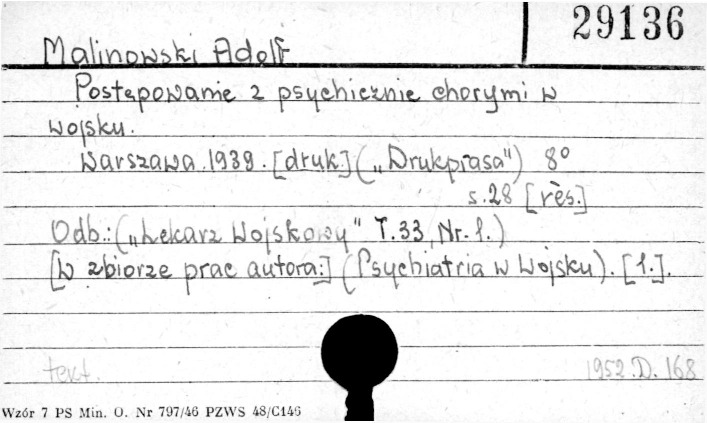 29136
Malinowski Adolf
Postępowanie z psychicznie chorymi w
wojsku.
Warszawa 1939. [druk.] („Drukprasa") 8°
s. 28 [rés.]
Odb.: („Lekarz Wojskowy" T. 33, Nr. 1.)
[W zbiorze prac autora:] (Psychiatria w Wojsku). [1.].
tekt.
1952. D. 168
Wzór 7 PS Min. O. Nr 797/46 PZWS 48/C146